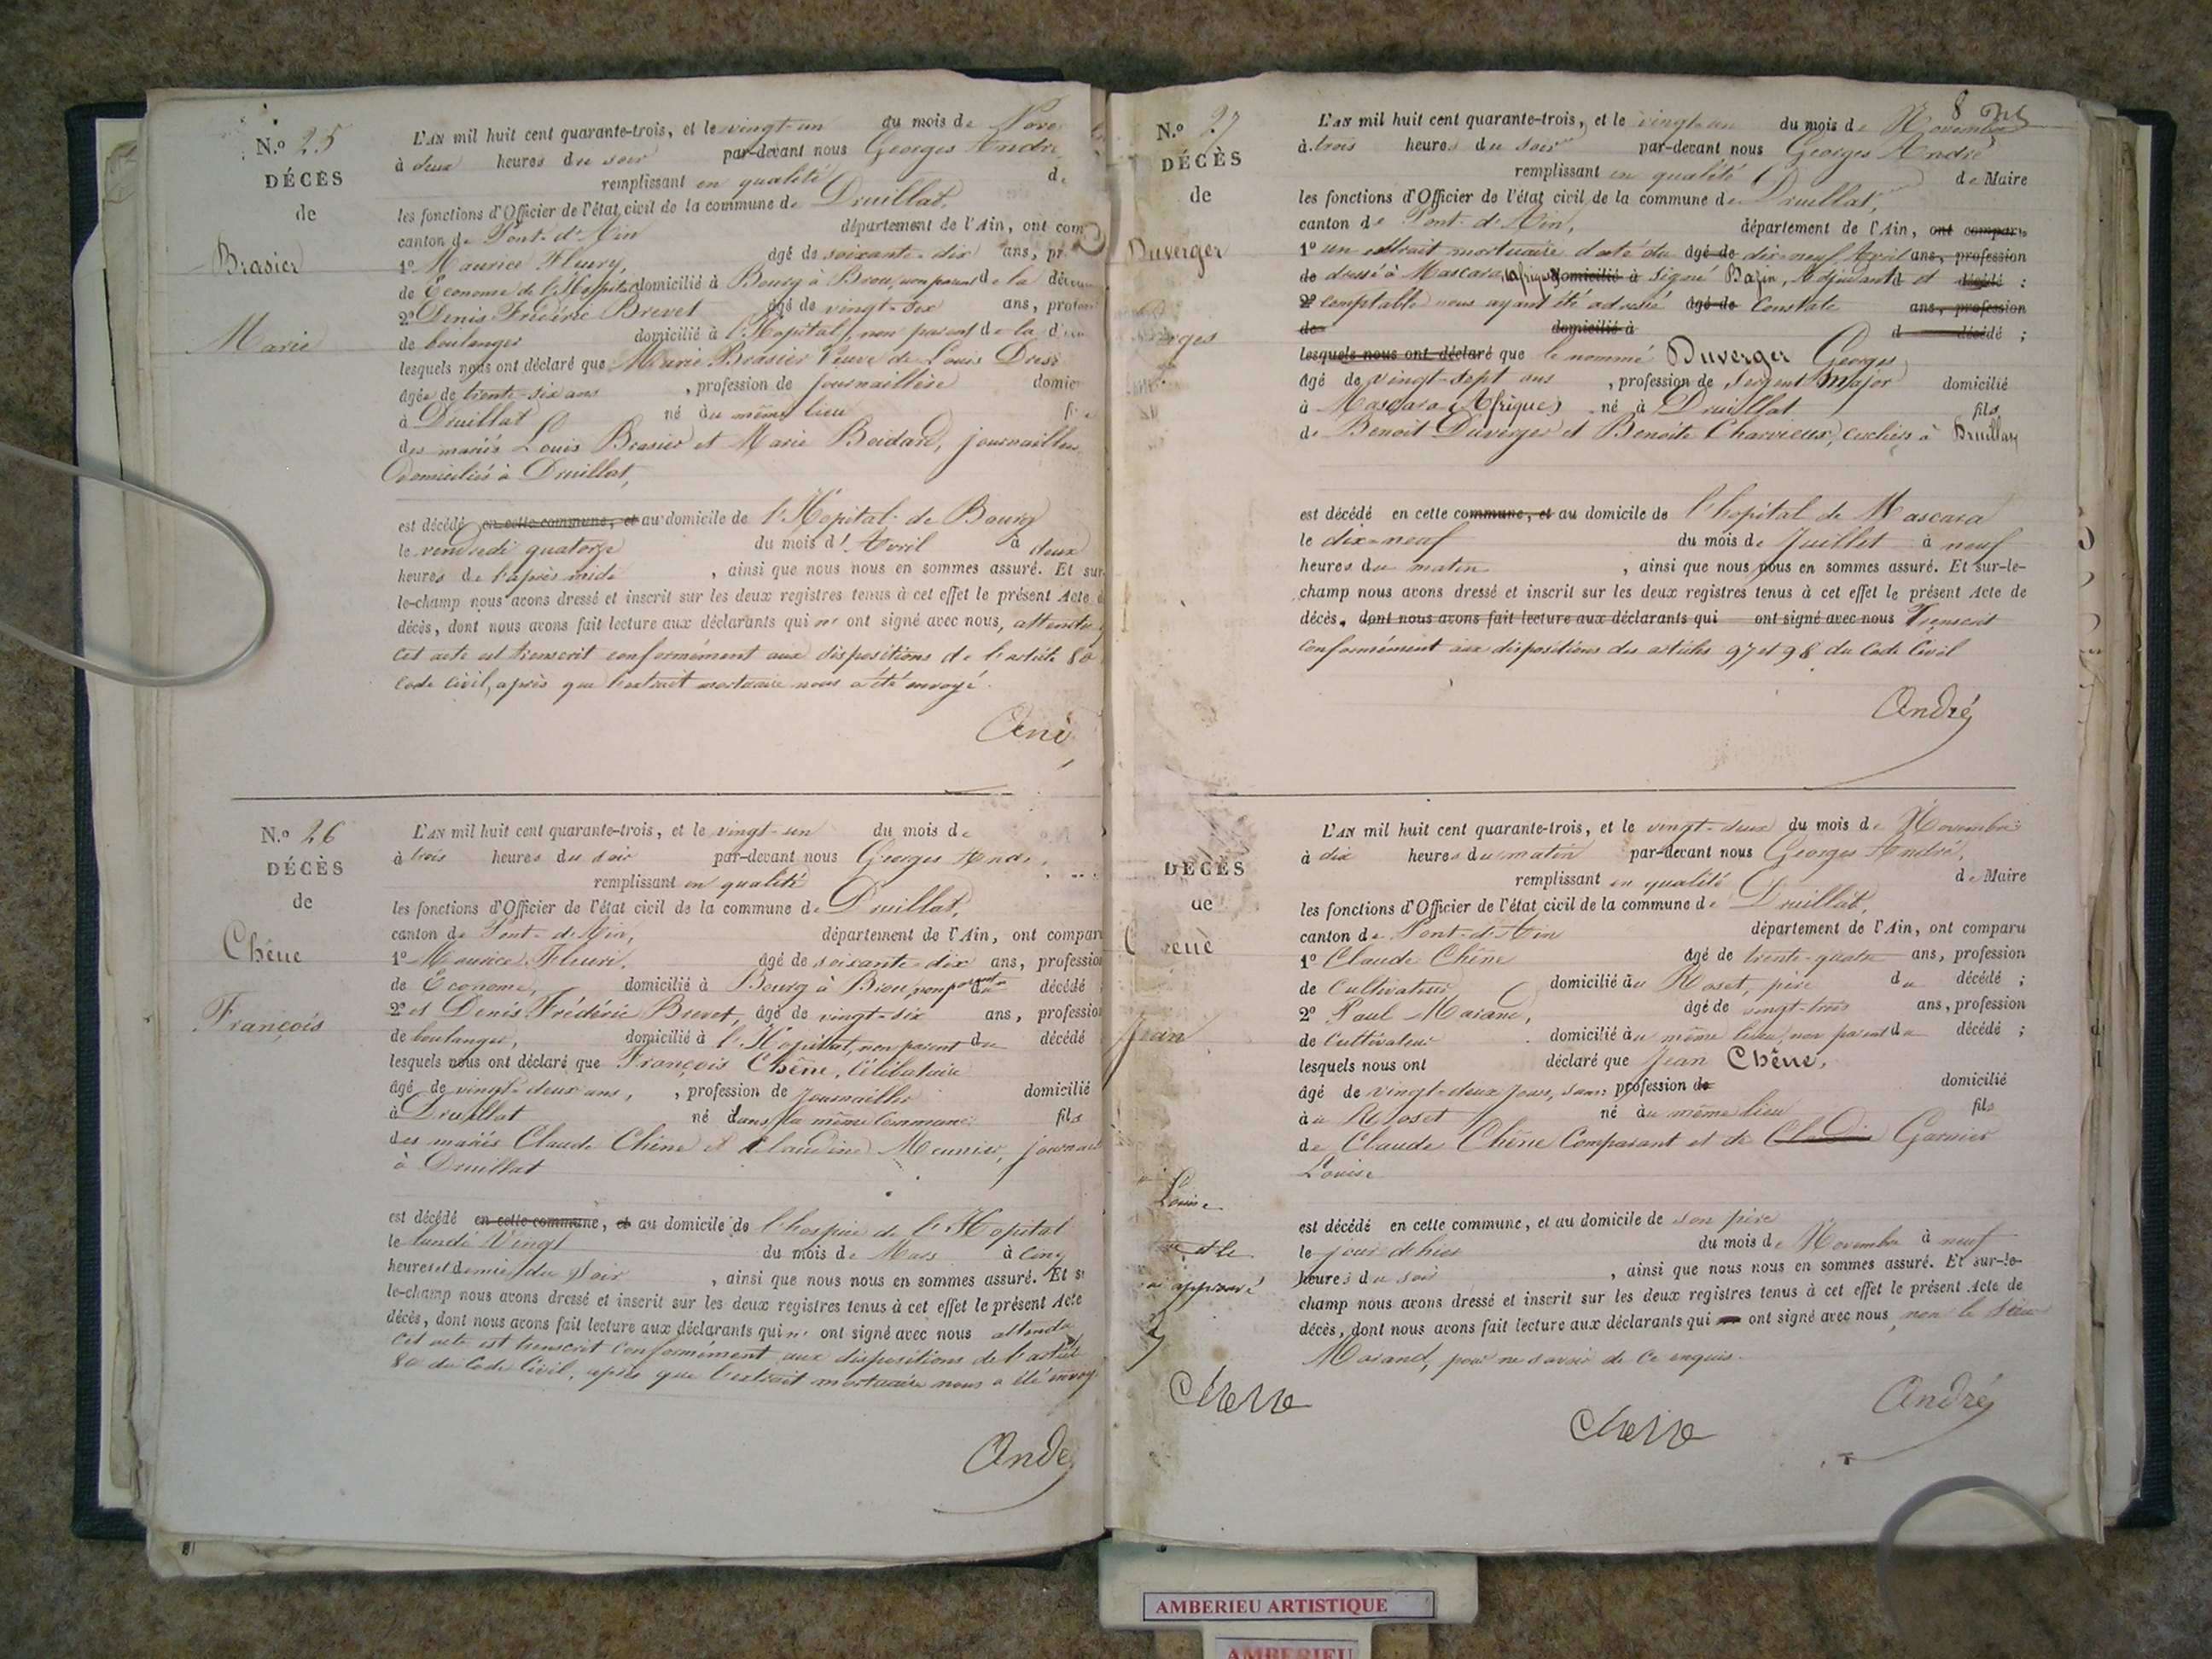 N.o 25
DÉCÈS
de
Brasier
Marie
L'AN mil huit cent quarante-trois, et le vingt-un du mois de Nove
à deux heures du soir par-devant nous Georges André
remplissant en qualité de
les fonctions d'Officier de l'état civil de la commune de Druillat,
canton de Pont-d'Ain département de l'Ain, ont com
1o Maurice Fleury, âgé de soixante-dix ans, pr
de Econome de l'Hopital domicilié à Bourg à Brou, non parent de la
2o Denis Frédéric Brevet âgé de vingt-six ans, profes
de boulanger domicilié à l'Hopital, non parent de la
lesquels nous ont déclaré que Marie Brasier Veuve de Louis
âgée de trente-six ans , profession de journaillère domic
à Druillat né au même lieu
des mariés Louis Brasier et Marie Boidard, journailliers
Domiciliés à Druillat,
est décédé en cette commune, et au domicile de l'Hopital de Bourg
le vendredi quatorze du mois d'Avril à deux
heures de l'après midi , ainsi que nous nous en sommes assuré. Et sur-
le-champ nous avons dressé et inscrit sur les deux registres tenus à cet effet le présent Acte
décès, dont nous avons fait lecture aux déclarants qui n' ont signé avec nous, attendu
cet acte est transcrit conformément aux dispositions de l'article 80
Code Civil, après que l'extrait mortuaire nous a été envoyé.
N.o 26
DÉCÈS
de
Chêne
François
L'AN mil huit cent quarante-trois, et le vingt-un du mois de
à trois heures du soir par-devant nous Georges André
remplissant en qualité
les fonctions d'Officier de l'état civil de la commune de Druillat,
canton de Pont-d'Ain, département de l'Ain, ont compar
1o Maurice Fleuri, âgé de soixante-dix ans, profession
de Econome, domicilié à Bourg à Brou, non parent du décédé
2o et Denis Frédéric Brevet, âgé de vingt-six ans, profession
de boulanger, domicilié à l'Hopital, non parent du décédé
lesquels nous ont déclaré que François Chêne, Célibataire
âgé de vingt-deux ans, , profession de Journaillier domicilié
à Druillat né dans la même Commune fils
des mariés Claude Chêne et Claudine Meunier, journail
à Druillat
est décédé en cette commune, et au domicile de l'hospice de l'Hopital
le lundi Vingt du mois de Mars à Cinq
heures et demie du Soir , ainsi que nous nous en sommes assuré. Et s
le-champ nous avons dressé et inscrit sur les deux registres tenus à cet effet le présent Acte
décès, dont nous avons fait lecture aux déclarants qui n' ont signé avec nous attendu
cet acte est transcrit Conformément aux dispositions de l'article
80 du Code Civil, après que l'extrait mortuaire nous a été envoy
N.o 27
DÉCÈS
de
Duverger
8
L'AN mil huit cent quarante-trois, et le vingt-un du mois de Novembre
à trois heures du soir par-devant nous Georges André
remplissant en qualité de Maire
les fonctions d'Officier de l'état civil de la commune de Druillat,
canton de Pont-d'Ain, département de l'Ain, ont comparu
1o un extrait mortuaire daté du âgé de dix-neuf Avril ans, profession
de dressé à Mascara Afrique domicilié à Signé Bazin, Adjudant d et décédé ;
2o Comptable nous ayant été adressé âgé de Constate ans, profession
de domicilié à d décédé ;
lesquels nous ont déclaré que le nommé Duverger Georges
âgé de vingt-sept ans , profession de Sergent Major domicilié
à Mascara (Afrique) né à Druillat fils
de Benoit Duverger et Benoite Charvieux, à Druillat
est décédé en cette commune, et au domicile de l'hopital de Mascara
le dix-neuf du mois de Juillet à neuf
heures du matin , ainsi que nous nous en sommes assuré. Et sur-le-
champ nous avons dressé et inscrit sur les deux registres tenus à cet effet le présent Acte de
décès. dont nous avons fait lecture aux déclarants qui ont signé avec nous Transcrit
Conformément aux dispositions des articles 97 et 98 du Code Civil
André
DÉCÈS
de
Jean
Louise
approuvé
Chene
L'AN mil huit cent quarante-trois, et le vingt-deux du mois de Novembre
à dix heures du matin par-devant nous Georges André,
remplissant en qualité de Maire
les fonctions d'Officier de l'état civil de la commune de Druillat,
canton de Pont-d'Ain département de l'Ain, ont comparu
1o Claude Chêne âgé de trente-quatre ans, profession
de Cultivateur domicilié au Roset, père du décédé ;
2o Paul Marand, âgé de vingt-trois ans, profession
de Cultivateur domicilié au même lieu, non parent du décédé ;
lesquels nous ont déclaré que Jean Chêne,
âgé de vingt-deux jours, sans profession de domicilié
au Roset né au même lieu fils
de Claude Chêne Comparant et de Garnier
Louise
est décédé en cette commune, et au domicile de son père
le jour d'hier du mois de Novembre à neuf
heures du soir , ainsi que nous nous en sommes assuré. Et sur-le-
champ nous avons dressé et inscrit sur les deux registres tenus à cet effet le présent Acte de
décès, dont nous avons fait lecture aux déclarants qui ont signé avec nous, non le Sieur
Marand, pour ne savoir de ce enquis.
André
Chene
AMBERIEU ARTISTIQUE
AMBERIEU